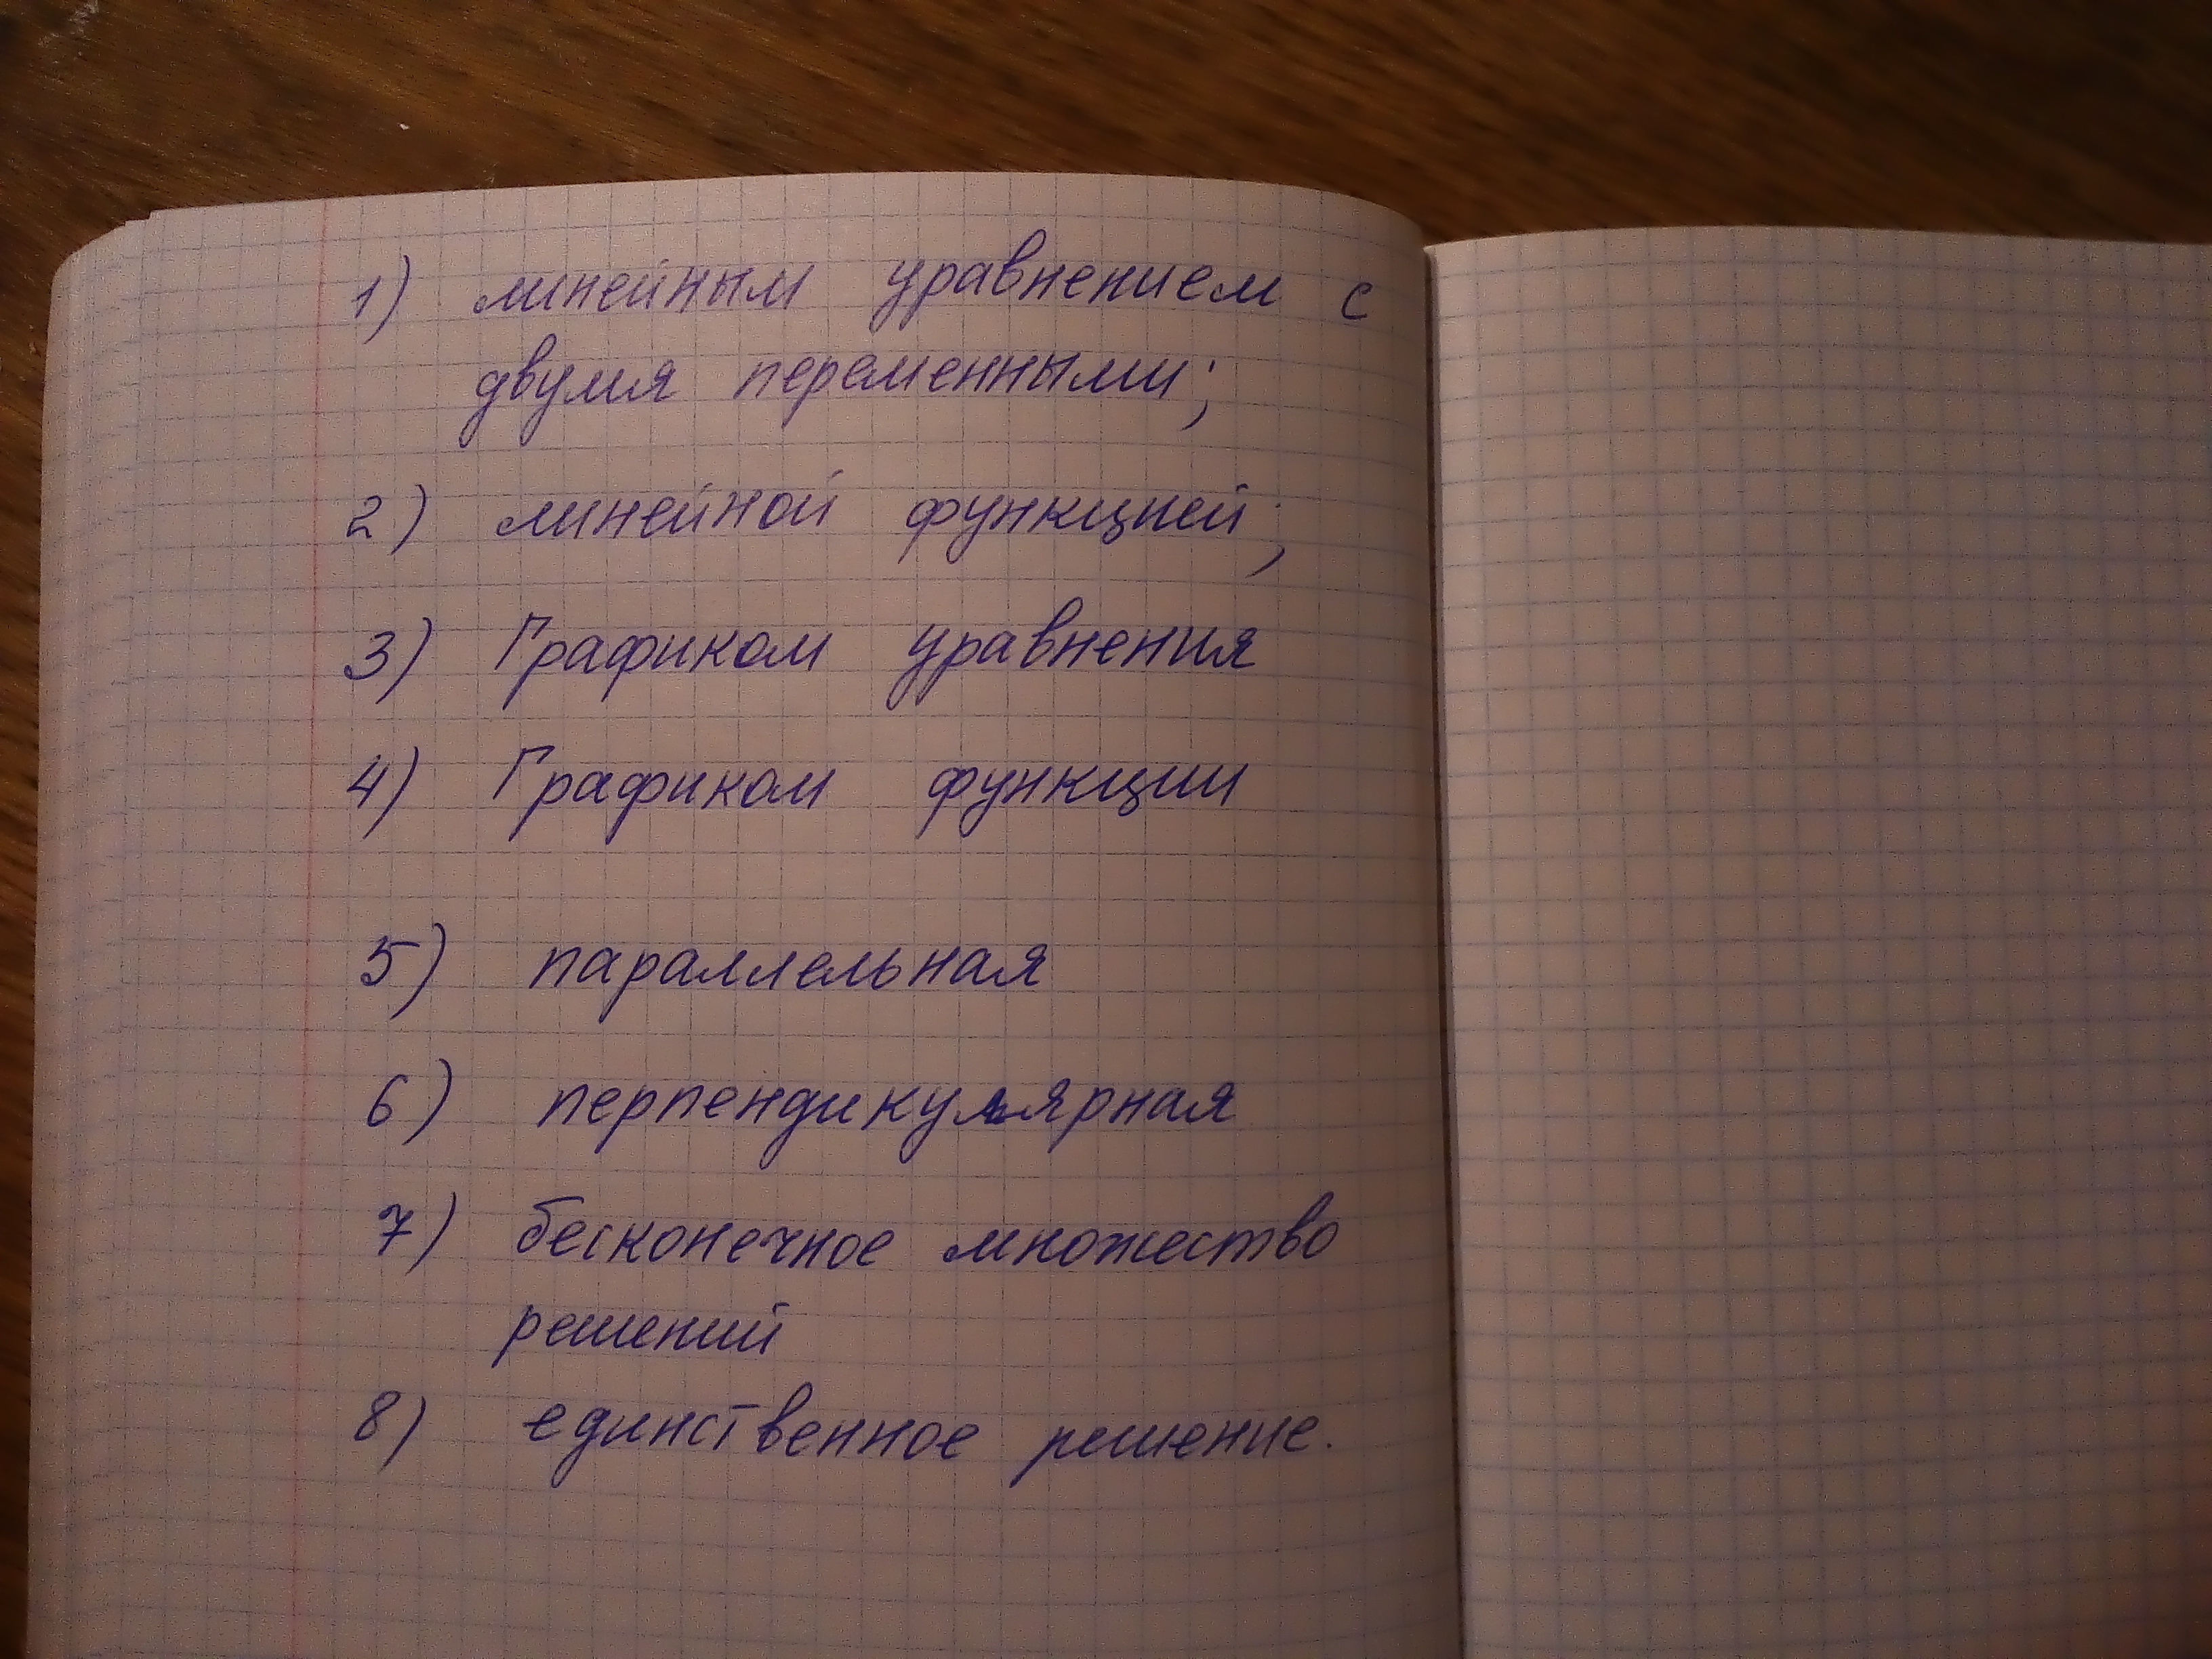 1) линейным уравнением с
двумя переменными;
2) линейной функцией;
3) Графиком уравнения
4) Графиком функции
5) параллельная
6) перпендикулярная
7) бесконечное множество
решений
8) единственное решение.